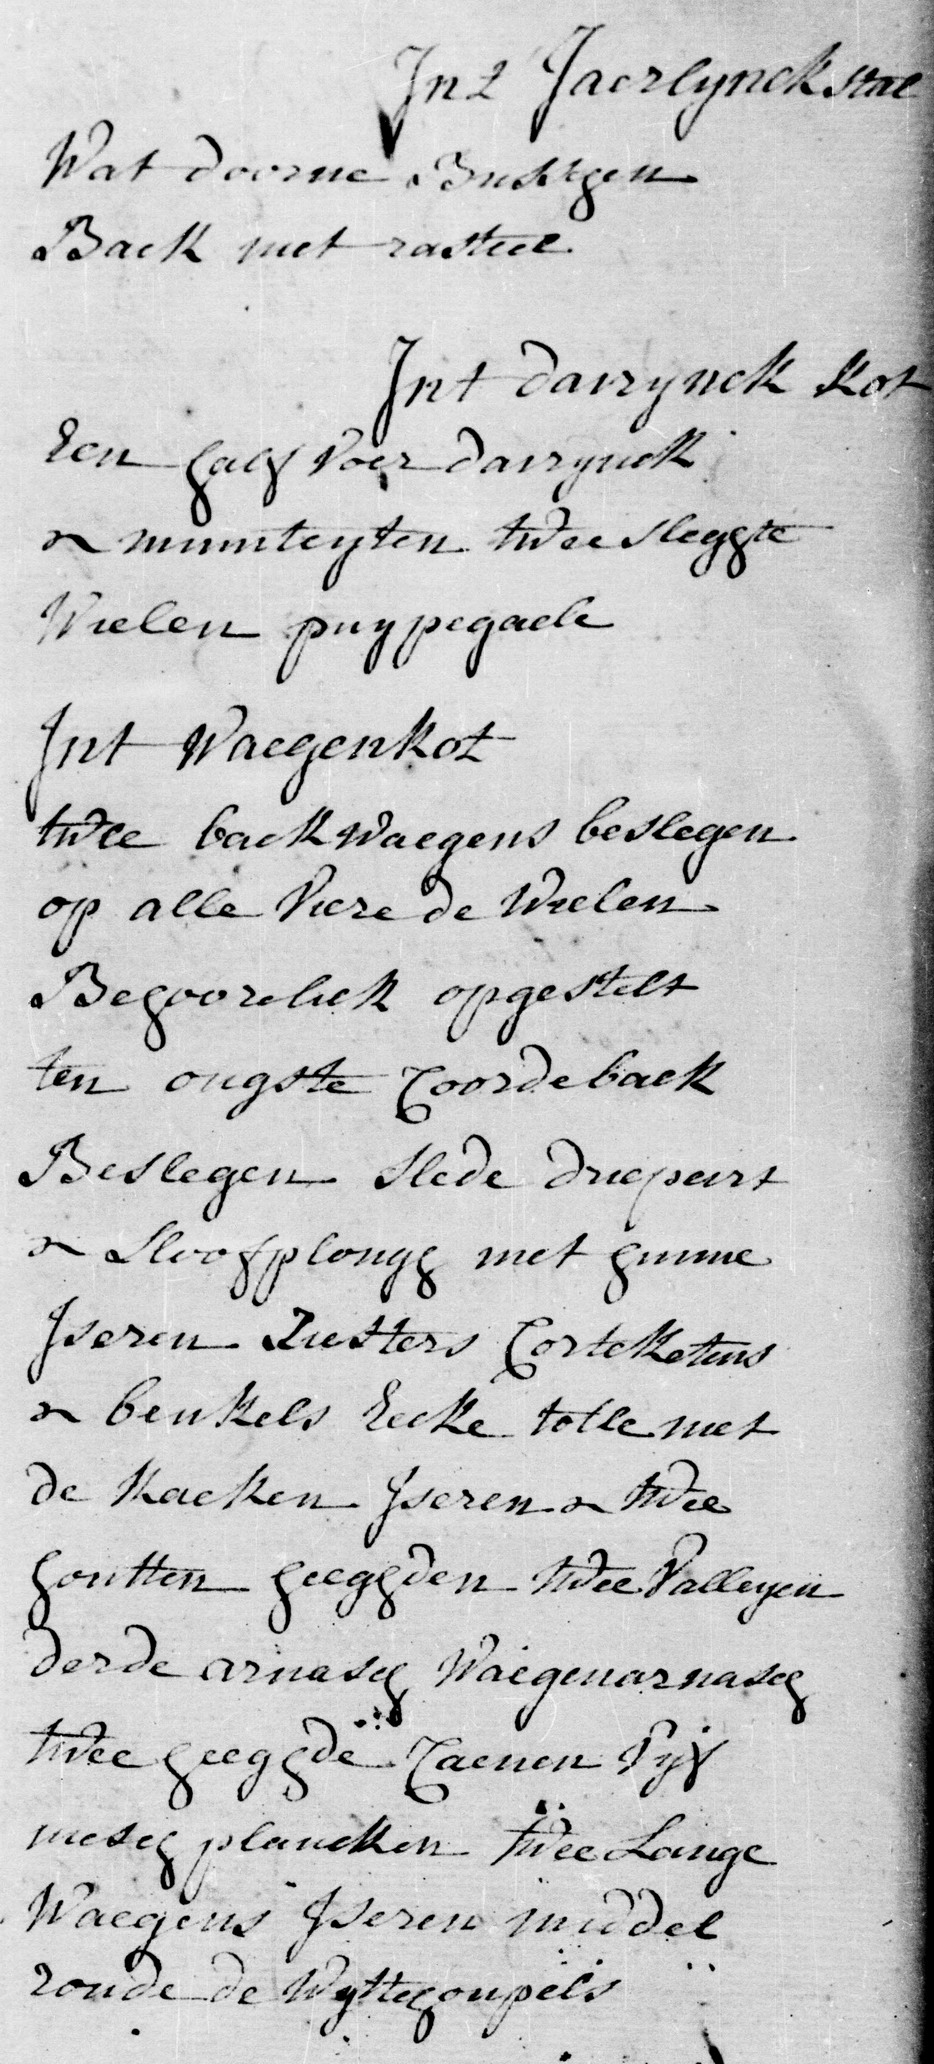 Int Jaerlynck stal
Wat doorne Busschen
Back met rasteel
Int davrynck kot
Een half voer davrynck
& twee sleghte
Wielen puypegaele
Int Waegenkot
twee back waegens beslegen
op alle viere de Wielen
Behoorelick opgestelt
ten ougste Coordeback
Beslegen slede driepeirt
& sloofplough met hunne
Iseren Corte Ketens
& benkels Eecke tolle met
de Kaeken Iseren & twee
houtten heeghden twee Valleyen
derde arnasch Waegenarnasch
twee heeghde Caenen Vyf
mesch plancken twee Lange
Waegens Iseren middel
ronde de